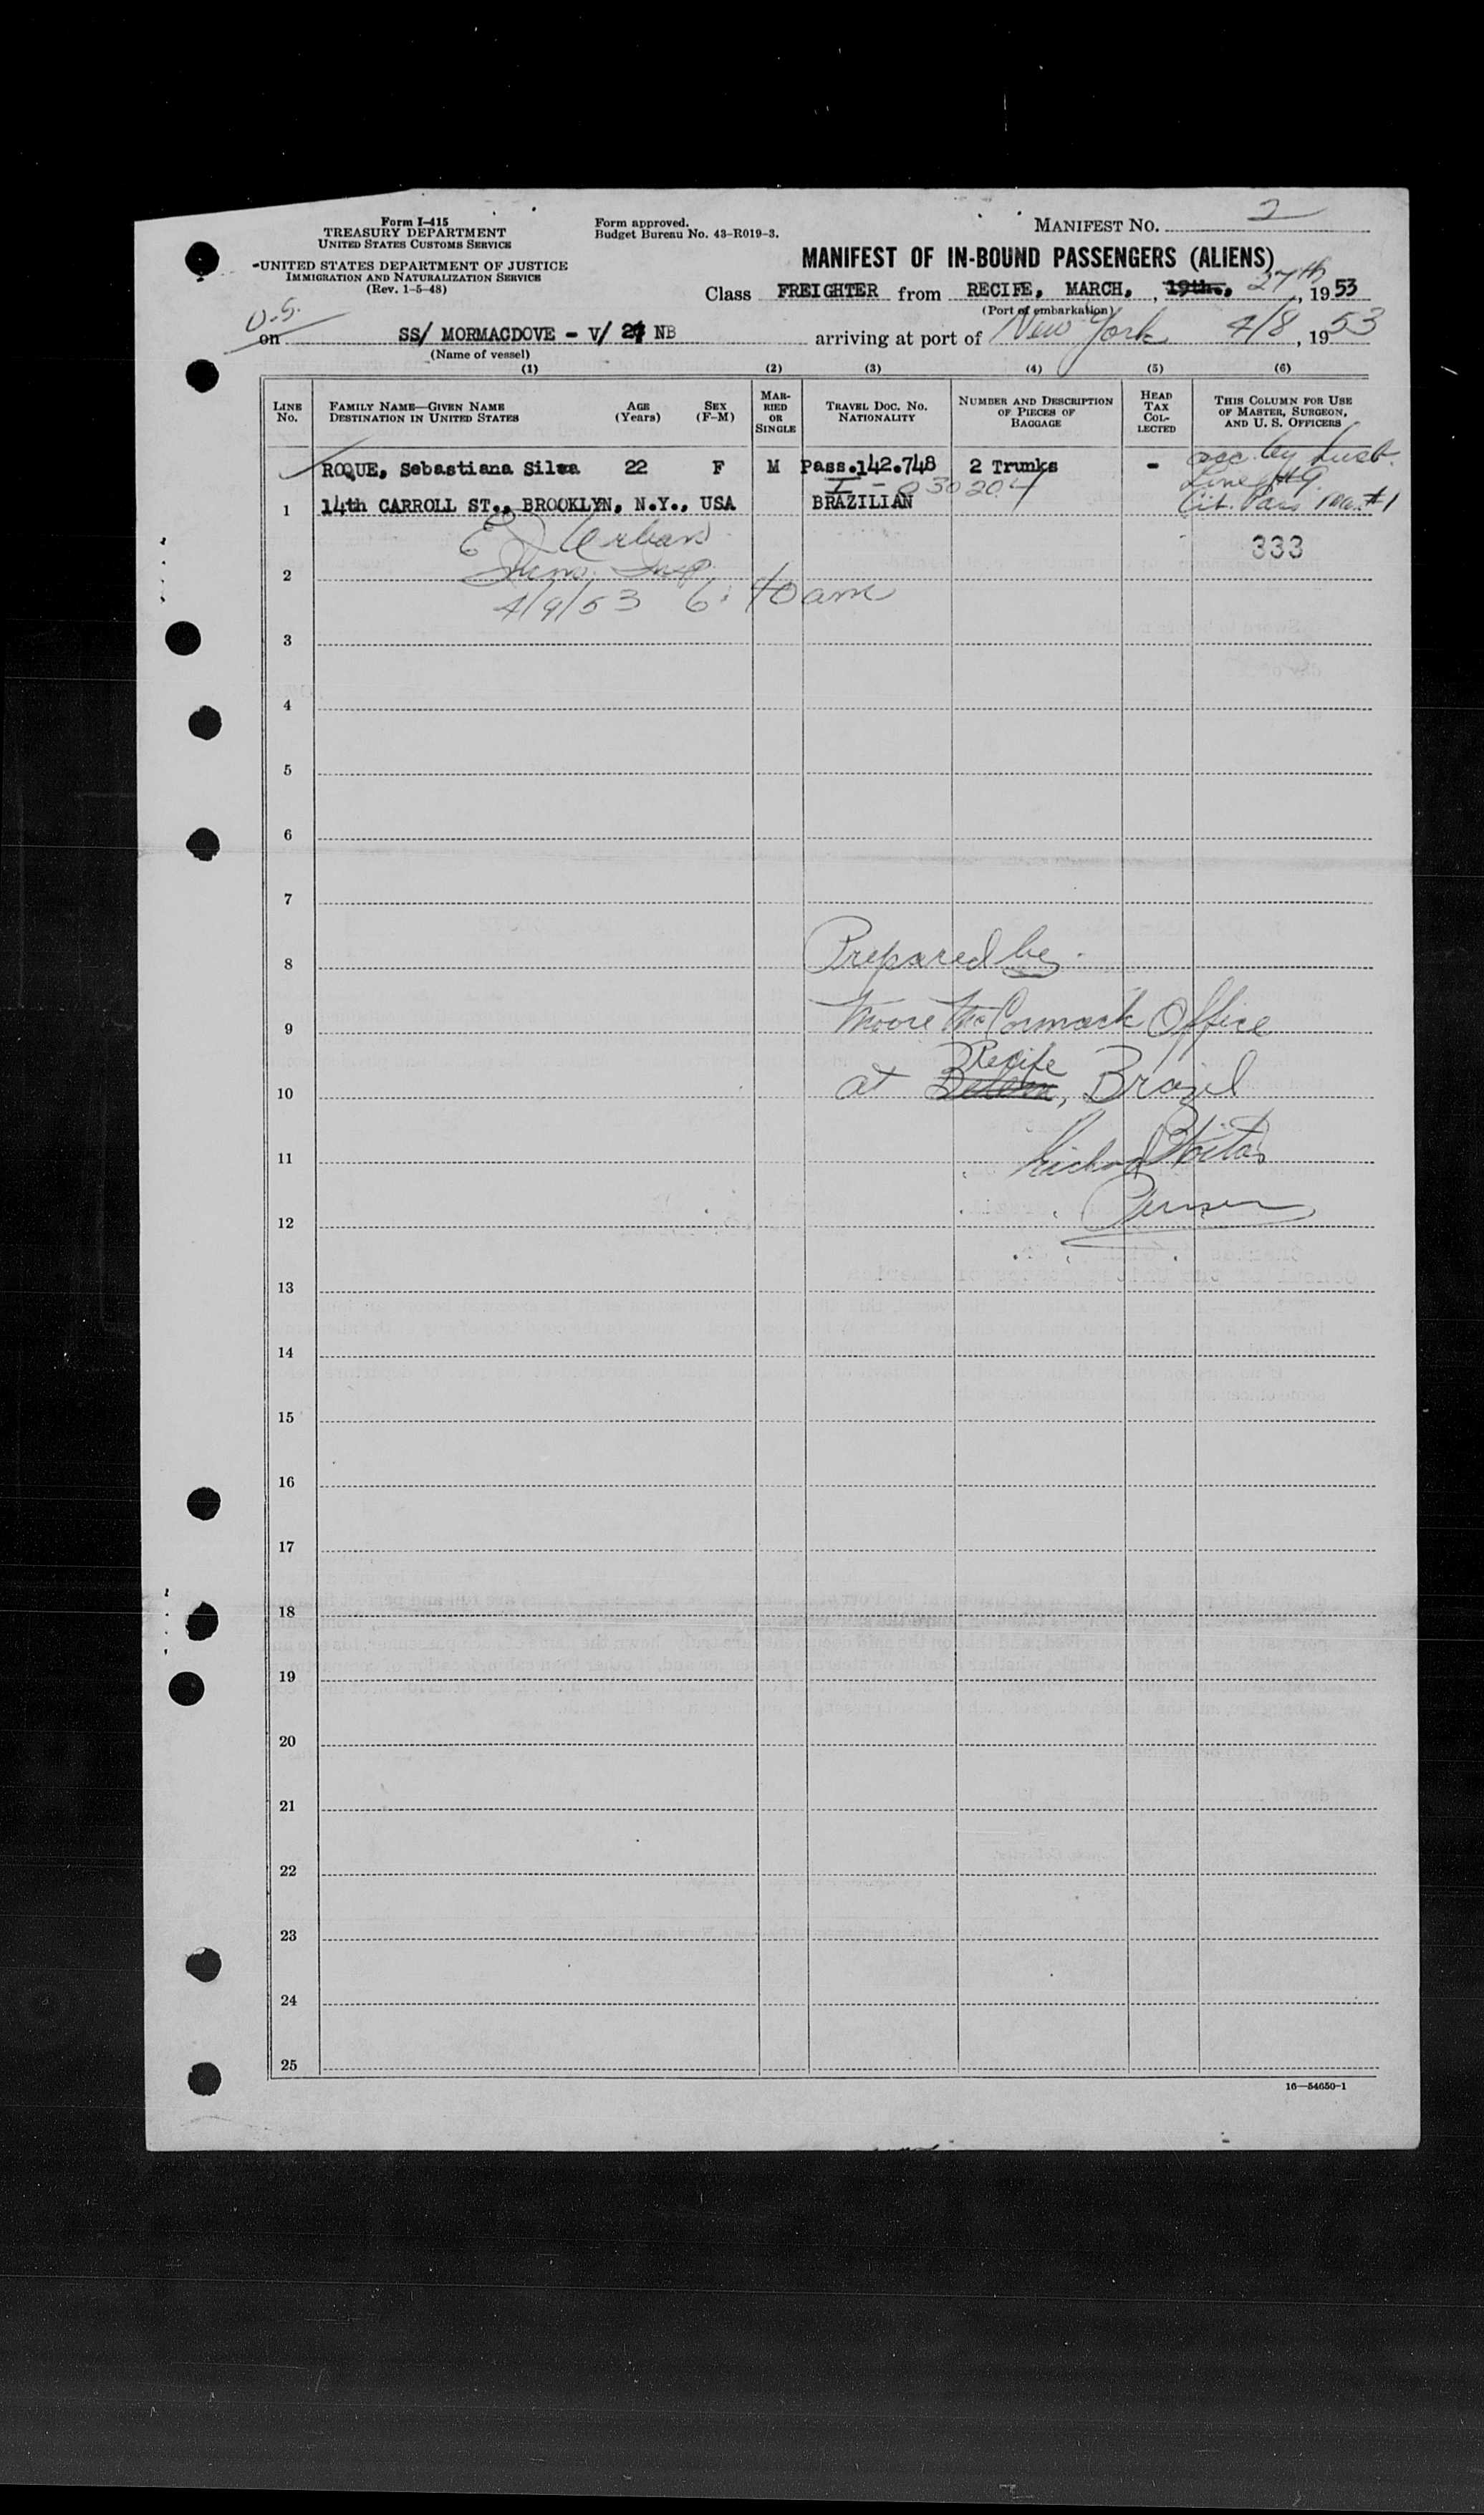 Form I-415
TREASURY DEPARTMENT
UNITED STATES CUSTOMS SERVICE
UNITED STATES DEPARTMENT OF JUSTICE
IMMIGRATION AND NATURALIZATION SERVICE
(Rev. 1-5-48)
Form approved.
Budget Bureau No. 43-R019-3.
MANIFEST NO. 2
MANIFEST OF IN-BOUND PASSENGERS (ALIENS)
Class FREIGHTER from RECIFE, MARCH, , 19th., 27th, 1953
(Port of embarkation)
U.S.
on SS/ MORMACDOVE - V/ 24 NB arriving at port of New York 4/8, 1953
(Name of vessel)
(1) (2) (3) (4) (5) (6)
LINE NO. FAMILY NAME—GIVEN NAME DESTINATION IN UNITED STATES AGE (Years) SEX (F-M) MARRIED OR SINGLE TRAVEL DOC. NO. NATIONALITY NUMBER AND DESCRIPTION OF PIECES OF BAGGAGE HEAD TAX COLLECTED THIS COLUMN FOR USE OF MASTER, SURGEON, AND U. S. OFFICERS
ROQUE, Sebastiana Silva 22 F M Pass.142.748 2 Trunks - acc. by Husb.
I - 030204 Line #9
1 14th CARROLL ST., BROOKLYN, N.Y., USA BRAZILIAN Cit. Pass Man #1
E J Urban
333
2 Imm. Insp.
4/9/53 6:40 am
3
4
5
6
7
Prepared by
8
9 Moore McCormack Office
Recife
10 at Belem, Brazil
11 Richard
12 Purser
13
14
15
16
17
18
19
20
21
22
23
24
25
16—54650-1